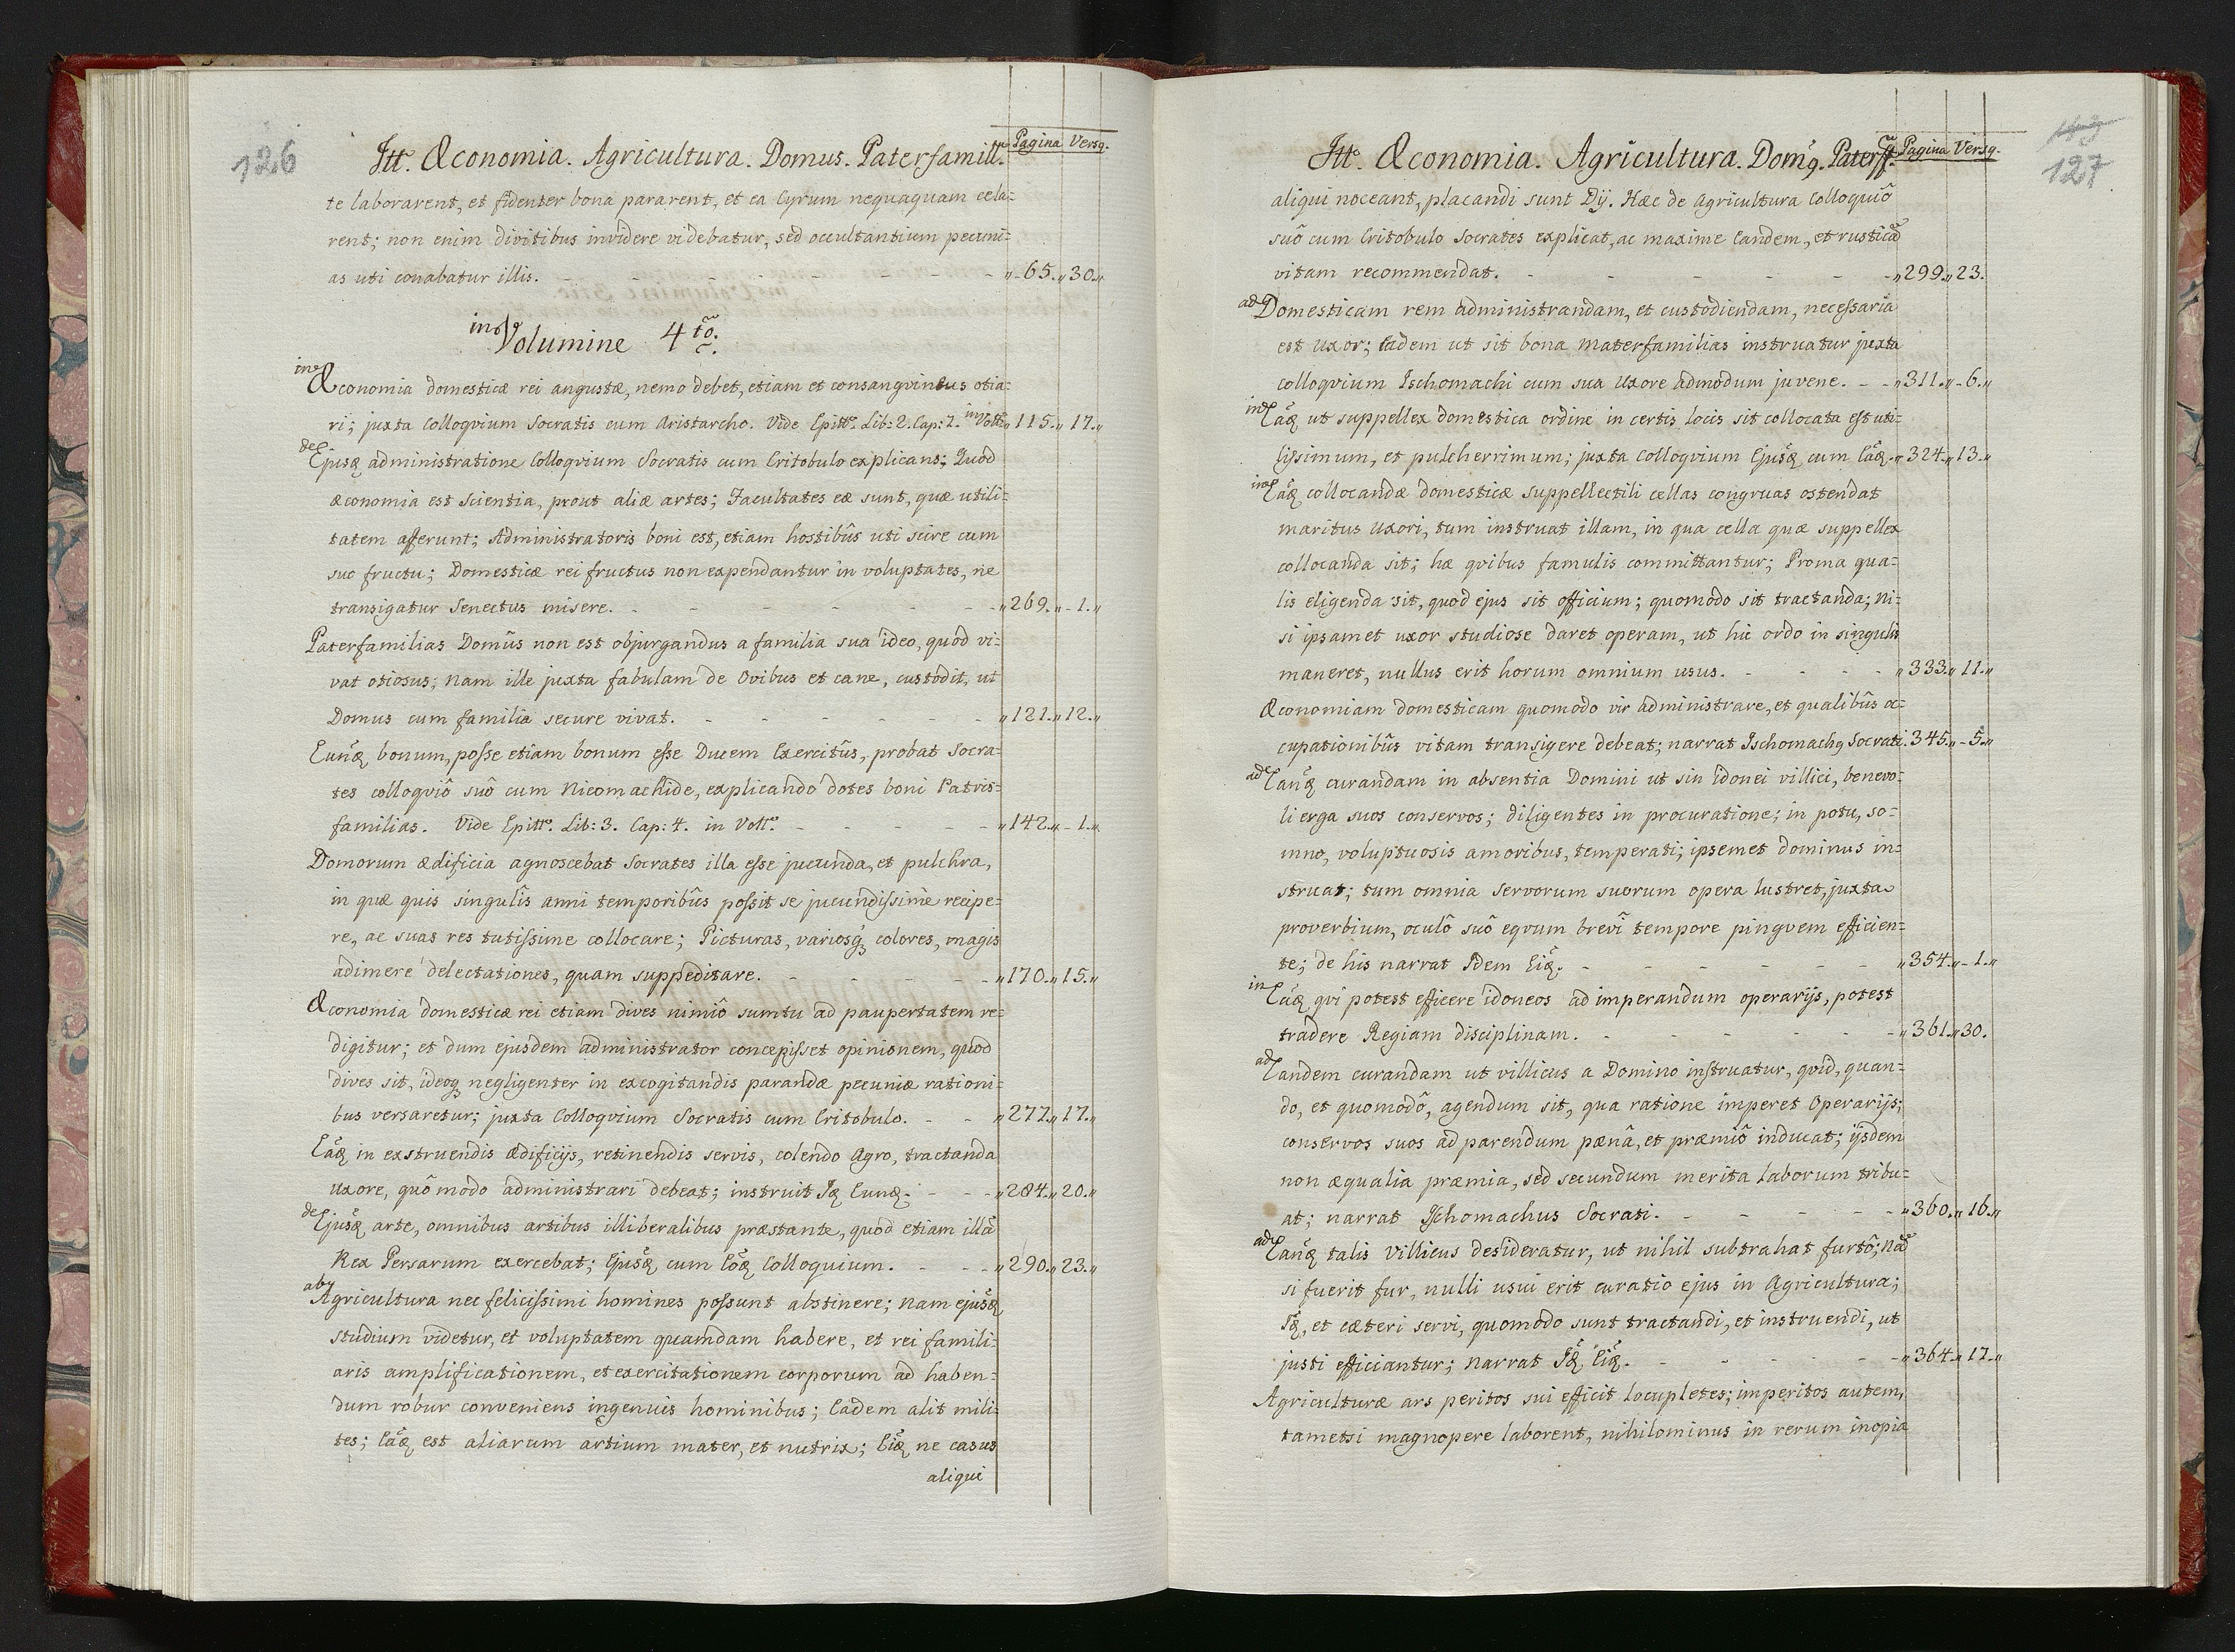 126
Itt. Œconomia. Agricultura. Domus. Paterfamill. Pagina Versq.
te laborarent, et fidenter bona pararent, et ea Cyrum nequaquam cela:
rent; non enim divitibus invidere videbatur, sed occultantium pecuni:
as uti conabatur illis. - - - - - - - - „-65.„30.„
in Volumine 4to.
in Œconomia domesticæ rei angustæ, nemo debet, etiam et consangvineus otia:
ri; juxta Colloqvium Socratis cum Aristarcho. Vide Epitt. Lib: 2. Cap: 7. in Vott. „115.„17.„
de Ejusq administratione Colloqvium Socratis cum Critobulo explicans; Quod
œconomia est scientia, prout aliæ artes; Facultates eæ sunt, quæ utili:
tatem afferunt; Administratoris boni est, etiam hostibûs uti scire cum
suc fructu; Domesticæ rei fructus non expendantur in voluptates, ne
transigatur Senectus misere. - - - - - - „269.„-1.„
Paterfamilias Domûs non est objurgandus a familia sua ideo, quod vi:
vat otiosus; nam ille juxta fabulam de Ovibus et cane, custodit, ut
Domus cum familia secure vivat. - - - - - - „121.„12.„
Eunq̃ bonum, posse etiam bonum esse Ducem Exercitûs, probat Socra:
tes colloqviô suô cum Nicomachide, explicando dotes boni Patris:
familias. Vide Epitt. Lib: 3. Cap: 4. in Vott. - - - - - „142.„-1.„
Domorum ædificia agnoscebat Socrates illa esse jucunda, et pulchra,
in quæ quis singulîs anni temporibûs possit se jucundissimè recipe:
re, ac suas res tutissime collocare; Picturas, variosq̃ colores, magis
adimere delectationes, quam suppeditare. - - - - - „170.„15.„
Œconomia domesticæ rei etiam dives nimiô sumtu ad paupertatem re:
digitur; et dum ejusdem administrator concepisset opinionem, quod
dives sit, ideoq negligenter in excogitandis parandæ pecuniæ rationi:
bus versaretur; juxta Colloqvium Socratis cum Critobulo. - - „277.„17.„
Eãq̃ in exstruendis ædificijs, retinendis servis, colendo Agro, tractanda
uxore, quômodo administrari debeat; instruit Iq̃ Eunq̃. - - - „284.„20.„
de Ejusq̃ arte, omnibus artibus illiberalibus præstante, quod etiam illã
Rex Persarum exercebat; Ejusq̃ cum Eõq̃ Colloquium. - - - „290.„23.„
ab Agricultura nec felicissimi homines possunt abstinere; nam ejusq̃
studium videtur, et voluptatem quamdam habere, et rei famili:
aris amplificationem, et exercitationem corporum ad haben:
dum robur conveniens ingenuis hominibus; Eadem alit mili:
tes; Eãq̃ est aliarum artium mater, et nutrix; Eiq̃ ne casus
aliqui
127
Itt. Œconomia. Agricultura. Domq. Paterff. Pagina Versq.
aliqui noceant, placandi sunt Dij. Hæc de Agricultura Colloquiô
suô cum Critobulo Socrates explicat, ac maxime Eandem, et rusticã
vitam recommendat. - - - - - - „299.„23.
ad Domesticam rem administrandam, et custodiendam, necessaria
est uxor; Eadem ut sit bona Materfamilias instruatur juxta
colloqvium Ischomachi cum sua uxore admodum juvene. - - „311.„-6.„
in Eãq̃ ut suppellex domestica ordine in certis locis sit collocata est uti:
lissimum, et pulcherrimum; juxta Colloqvium Ejusq̃ cum Eãq̃. „324.„13.„
in Eãq̃ collocandæ domesticæ suppellectili cellas congruas ostendat
maritus uxori, tum instruat illam, in qua cella quæ suppellex
collocanda sit; hæ qvibus famulis committantur; Proma qua:
lis eligenda sit, quod ejus sit officium; quomodo sit tractanda; ni:
si ipsamet uxor studiose daret operam, ut hic ordo in singulis
maneret, nullus erit horum omnium usus. - - - - „333.„11.„
Œconomiam domesticam quomodo vir administrare, et qualibûs oc:
cupationibûs vitam transigere debeat; narrat Ischomachq Socrati. 345.„-5.„
ad Eanq̃ curandam in absentia Domini ut sin idonei villici, benevo:
li erga suos conservos; diligentes in procuratione; in potu, so:
mno, voluptuosis amoribus, temperati; ipsemet dominus in:
struat; tum omnia Servorum suorum opera lustret, juxta
proverbium, oculô suô eqvum brevî tempore pingvem efficien:
te; de his narrat Idem Eiq̃. - - - - - - - „354.„-1.„
in Eãq̃ qvi potest efficere idoneos ad imperandum operarijs, potest
tradere Regiam disciplinam. - - - - - - „361.„30.
ad Eandem curandam ut villicus a Domino instruatur, qvid, quan:
do, et quomodô, agendum sit, qua ratione imperet Operarijs;
conservos suos ad parendum pænâ, et præmiô inducat; ijsdem
non æqualia præmia, sed secundum merita laborum tribu:
at; narrat Ischomachus Socrati. - - - - - „360.„16.„
ad Eanq̃ talis Villicus desideratur, ut nihil subtrahat furtô; nã
si fuerit fur, nulli usui erit curatio ejus in Agricultura;
Iq̃, et cæteri servi, quomodo sunt tractandi, et instruendi, ut
justi efficiantur; narrat Iq̃ Eiq̃. - - - - - - „364.„17.„
Agriculturæ ars peritos sui efficit locupletes; imperitos autem,
tametsi magnopere laborent, nihilominus in rerum inopia